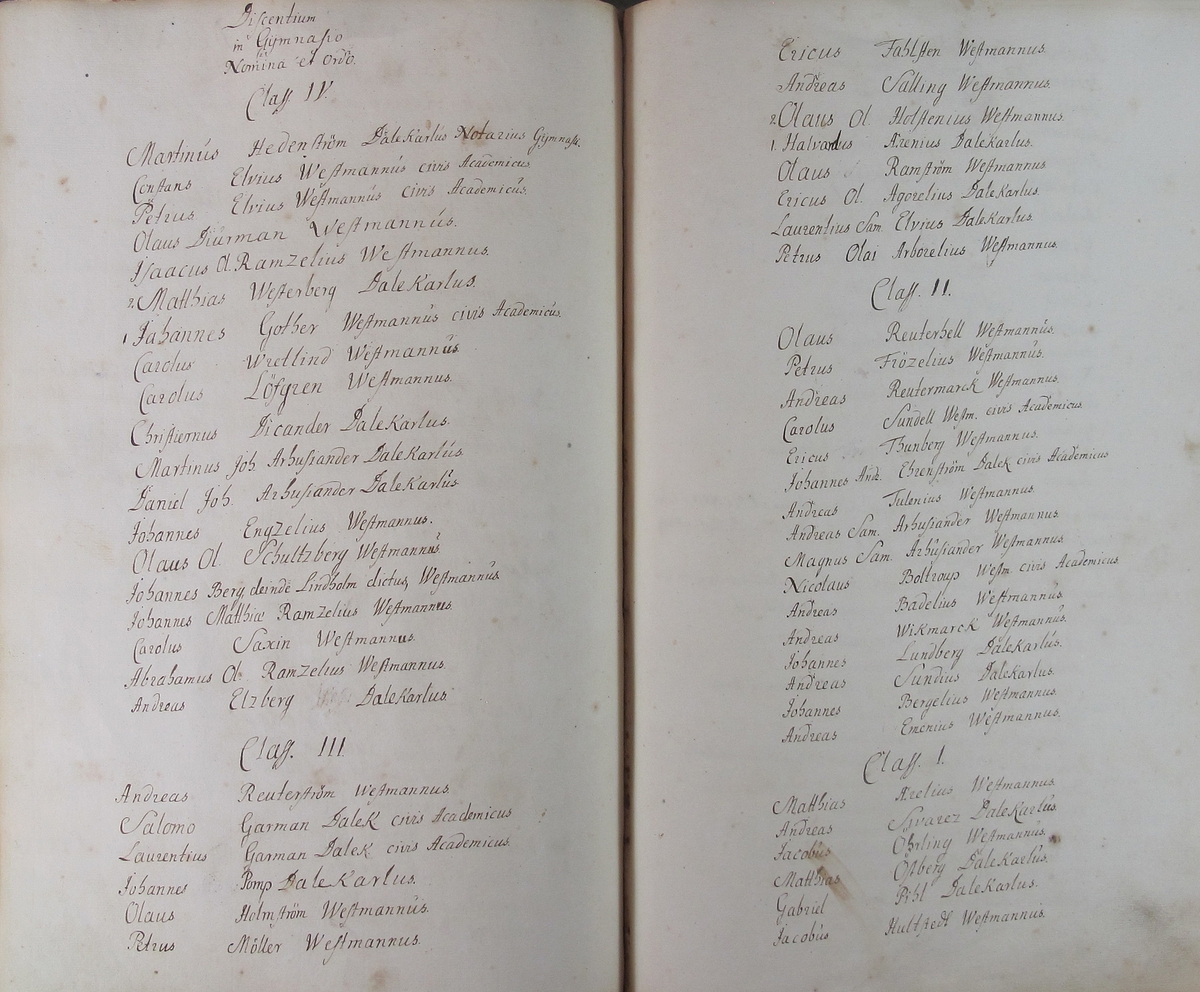 Discentium
in Gymnasio
Nomina et Ordo.
Class. IV.
Martinus Hedenström Dalekarlus Notarius Gymnasii.
Constans Elvius Westmannus civis Academicus
Petrus Elvius Westmannus civis Academicus.
Olaus Diurman Westmannus.
Isaacus Ol. Ramzelius Westmannus.
2. Matthias Westerberg Dalekarlus.
1 Johannes Gother Westmannus civis Academicus.
Carolus Wretlind Westmannus.
Carolus Löfgren Westmannus.
Christiernus Dicander Dalekarlus.
Martinus Joh Arhusiander Dalekarlus
Daniel Joh. Arhusiander Dalekarlus
Johannes Engzelius Westmannus.
Olaus Ol. Schultzberg Westmannus
Johannes Berg, deinde Lindholm dictus, Westmannus
Johannes Matthiæ Ramzelius Westmannus.
Carolus Saxin Westmannus.
Abrahamus Ol. Ramzelius Westmannus.
Andreas Elzberg Dalekarlus.
Class. III.
Andreas Reuterström Westmannus.
Salomo Garman Dalek civis Academicus
Laurentius Garman Dalek. civis Academicus.
Johannes Pomp Dalekarlus.
Olaus Holmström Westmannus.
Petrus Möller Westmannus.
Ericus Fahlsten Westmannus.
Andreas Salling Westmannus.
2. Olaus Ol. Holstenius Westmannus.
1. Halvardus Arenius Dalekarlus.
Olaus Ramström Westmannus
Ericus Ol. Agorelius Dalekarlus.
Laurentius Sam. Elvius Dalekarlus.
Petrus Olai Arborelius Westmannus.
Class. II.
Olaus Reuterhell Westmannus.
Petrus Frözelius Westmannus.
Andreas Reutermarck Westmannus.
Carolus Sundell Westm. civis Academicus.
Ericus Thunberg Westmannus.
Johannes And. Ehrenström Dalek civis Academicus
Andreas Tulenius Westmannus
Andreas Sam. Arhusiander Westmannus.
Magnus Sam. Arhusiander Westmannus.
Nicolaus Boltroup Westm. civis Academicus.
Andreas Badelius Westmannus.
Andreas Wikmarck Westmannus.
Johannes Lundberg Dalekarlus.
Andreas Sundius Dalekarlus.
Johannes Bergelius Westmannus.
Andreas Emenius Westmannus.
Class. I.
Matthias Arelius Westmannus.
Andreas Svarez Dalekarlus.
Jacobus Öhrling Westmannus.
Matthias Ösberg Dalekarlus.
Gabriel Pihl Dalekarlus.
Jacobus Hultstedt Westmannus.